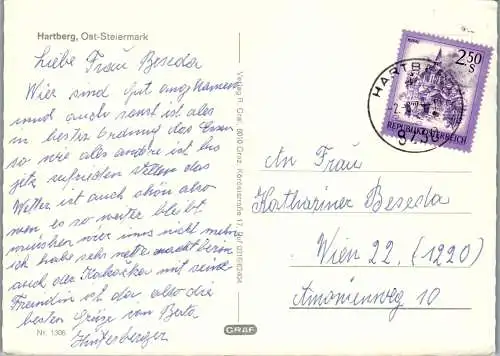 Hartberg, Ost-Steiermark
Liebe Frau Beseda
Wier sind gut angkamen
und auch sonst ist ales
in bester Ordnung das Essen
so wie ales andere ist bis
jetz zufrieden stellen das
Wetter ist auch schön also
wen es so weiter bleibt
wünschen wier uns nicht mehr
ich habe sehr nette
auch der mit seine
Freundin ist da also die
besten Grüße von Berta
Hinterberger
Nr. 1306
Verlag P. Graf, 8010 Graz
GRAF
2.50
S
REPUBLIK ÖSTERREICH
HARTBERG
An Frau
Kathariner Beseda
Wien 22. (1220)
Amonienweg 10